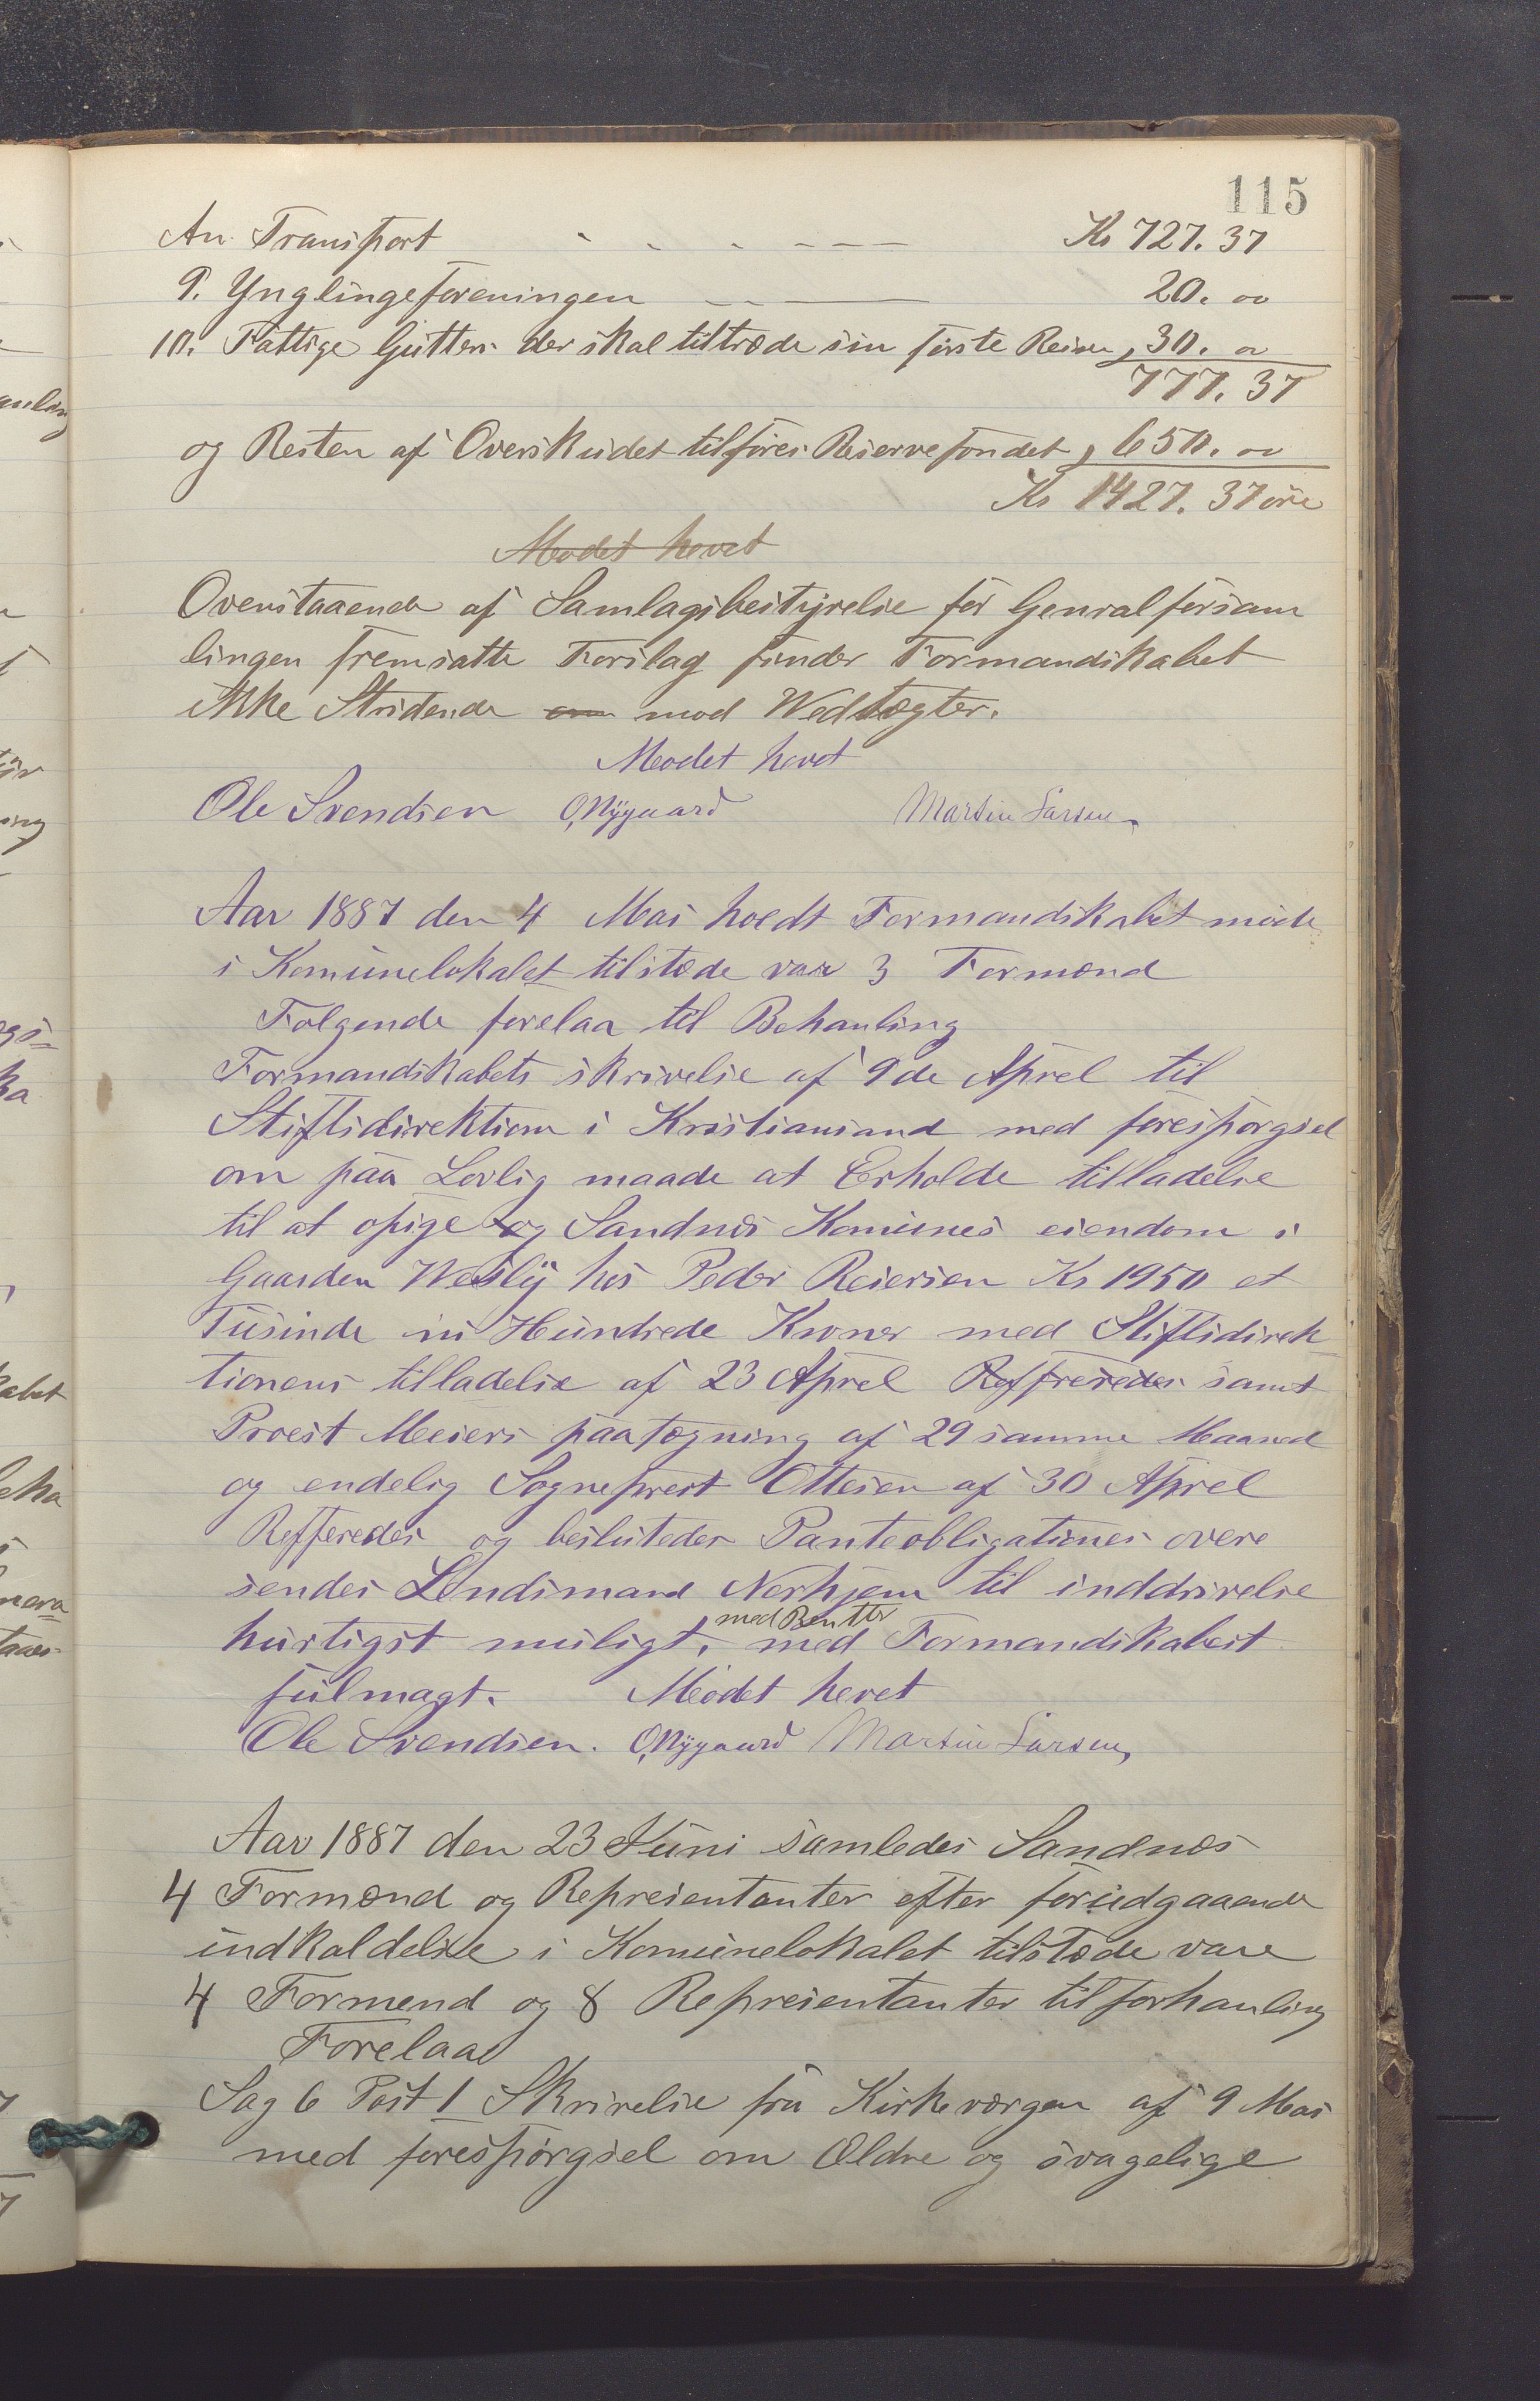 115
An Transport - - - - — — Kr 727. 37
9. Ynglingeforeningen — — — 20. 00
10. Fattige Gutter der skal tiltræde sin første Reise, 30. 00
777. 37
og Resten af Overskudet tilføres Reservefondet, 650. 00
Kr 1427. 37 øre
Meodet hevet
Ovenstaaende af Samlagsbestyrelse for Genralforsam
lingen fremsatte Forslag finder Formandskabet
ikke Stridende om mod Wedtægter.
Meodet hevet
Ole Svendsen O, Nygaard Martin Larsen
Aar 1887 den 4 Mai holdt Formandskabet møde
i Komunelokalet tilstede var 3 Formænd
Følgende forelaa til Behanling
Formandskabets skrivelse af 9de Aprel til
Stiftsdirektion i Kristiansand med forespørgsel
om paa Lovlig maade at Erholde tilladelse
til at opsige og Sandnæs Komunes eiendom i
Gaarden Wesly hos Peder Reiersen Kr 1950 et
Tusinde ni Hundrede Kroner med Stiftsdirek
tionens tilladelse af 23 Aprel Reffereredes samt
Proest Meiers paategning af 29 samme Maaned
og endelig Sogneprest Ottesen af 30 Aprel
Refferedes og besluteder Panteobligationes overe
sendes Lendsmand Norhjem til inddrivelse
med Rentter
hurtigst muligt, med Formandskabest
fulmagt. Meodet hevet
Ole Svendsen. O, Nygaard Martin Larsen,
Aar 1887 den 23 Juni samledes Sandnæs
4 Formænd og Represientanter efter forudgaaende
indkaldelse i Komunelokalet tilstede vare
4 Formend og 8 Represientanter til forhanling
Forelaa
Sag 6 Post 1 Skrivelse fra Kirkeværgen af 9 Mai
med forespørgsel om Ældre og svagelige